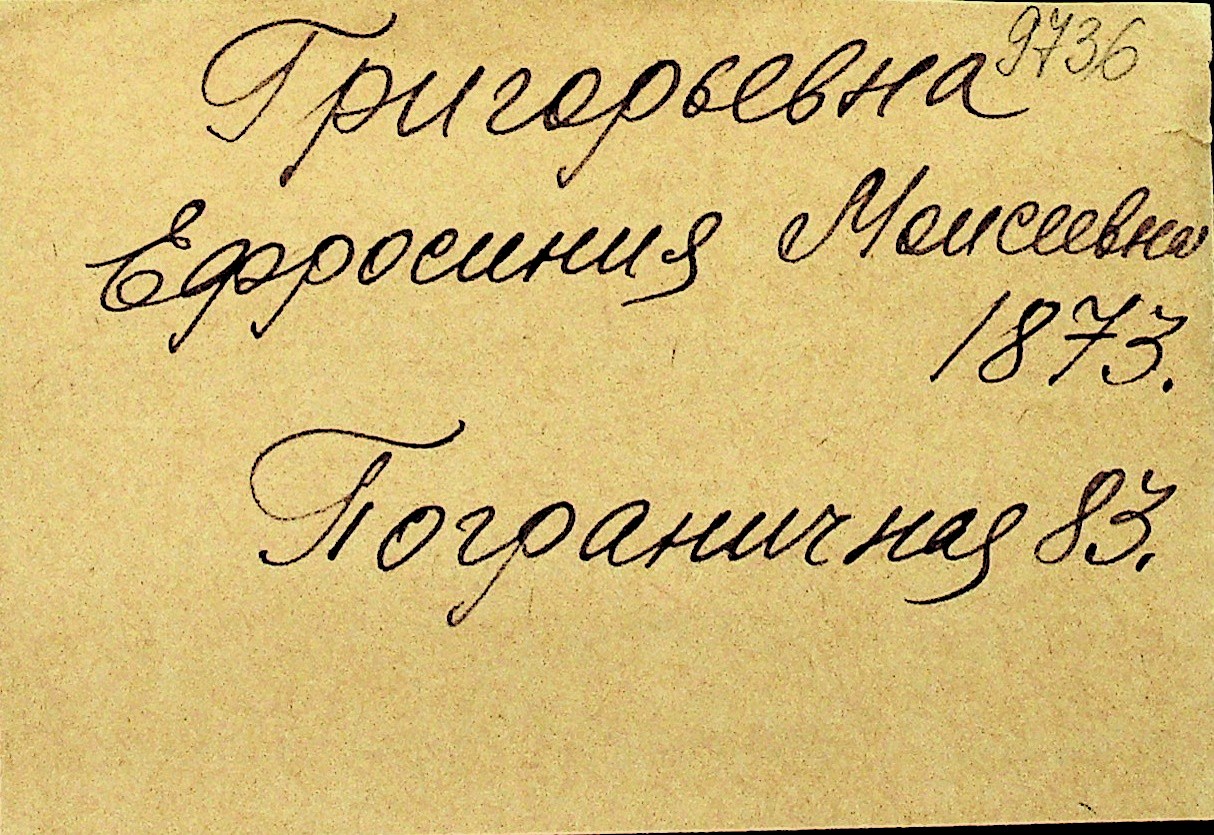 9736
Григорьевна
Ефросиния Моисеевна
1873.
Пограничная 83.